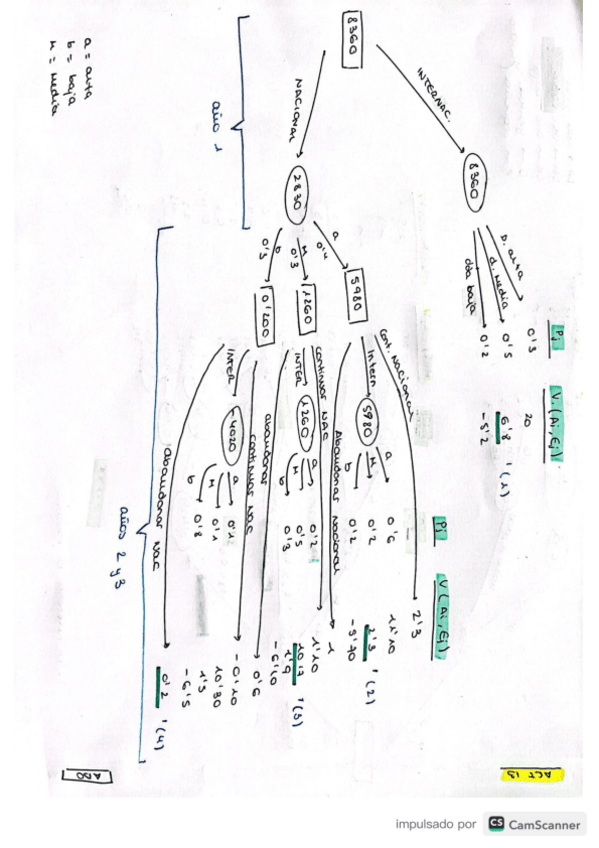 ACT 13
ADO
8360
INTERNAC.
8360
D. alta
d. Media
dda baja
Pj
0'3
0'5
0'2
V.(Ai,Ej)
20
6'8 '(1)
-5'2
NACIONAL
2830
a 0'4
M 0'3
b 0'3
5980
1260
0'200
Pj
V(Ai,Ej)
Cont. Nacional
2'3
Intern
5980
a 0'6 11'10
M 0'2 2'3 '(2)
b 0'2 -5'70
Abandonar Nacional
1
continuar NAC
1'10
INTER
1260
a 0'2 10'17
M 0'5 1'9 '(3)
b 0'3 -6'10
abandonar
0'6
continuar NAC
-0'10
INTER
-4020
a 0'1 10'30
M 0'1 1'5
b 0'8 -6'5
Abandonar NAC
0'2 '(4)
año 1
años 2 y 3
a = alta
b = baja
M = Media
impulsado por CS CamScanner